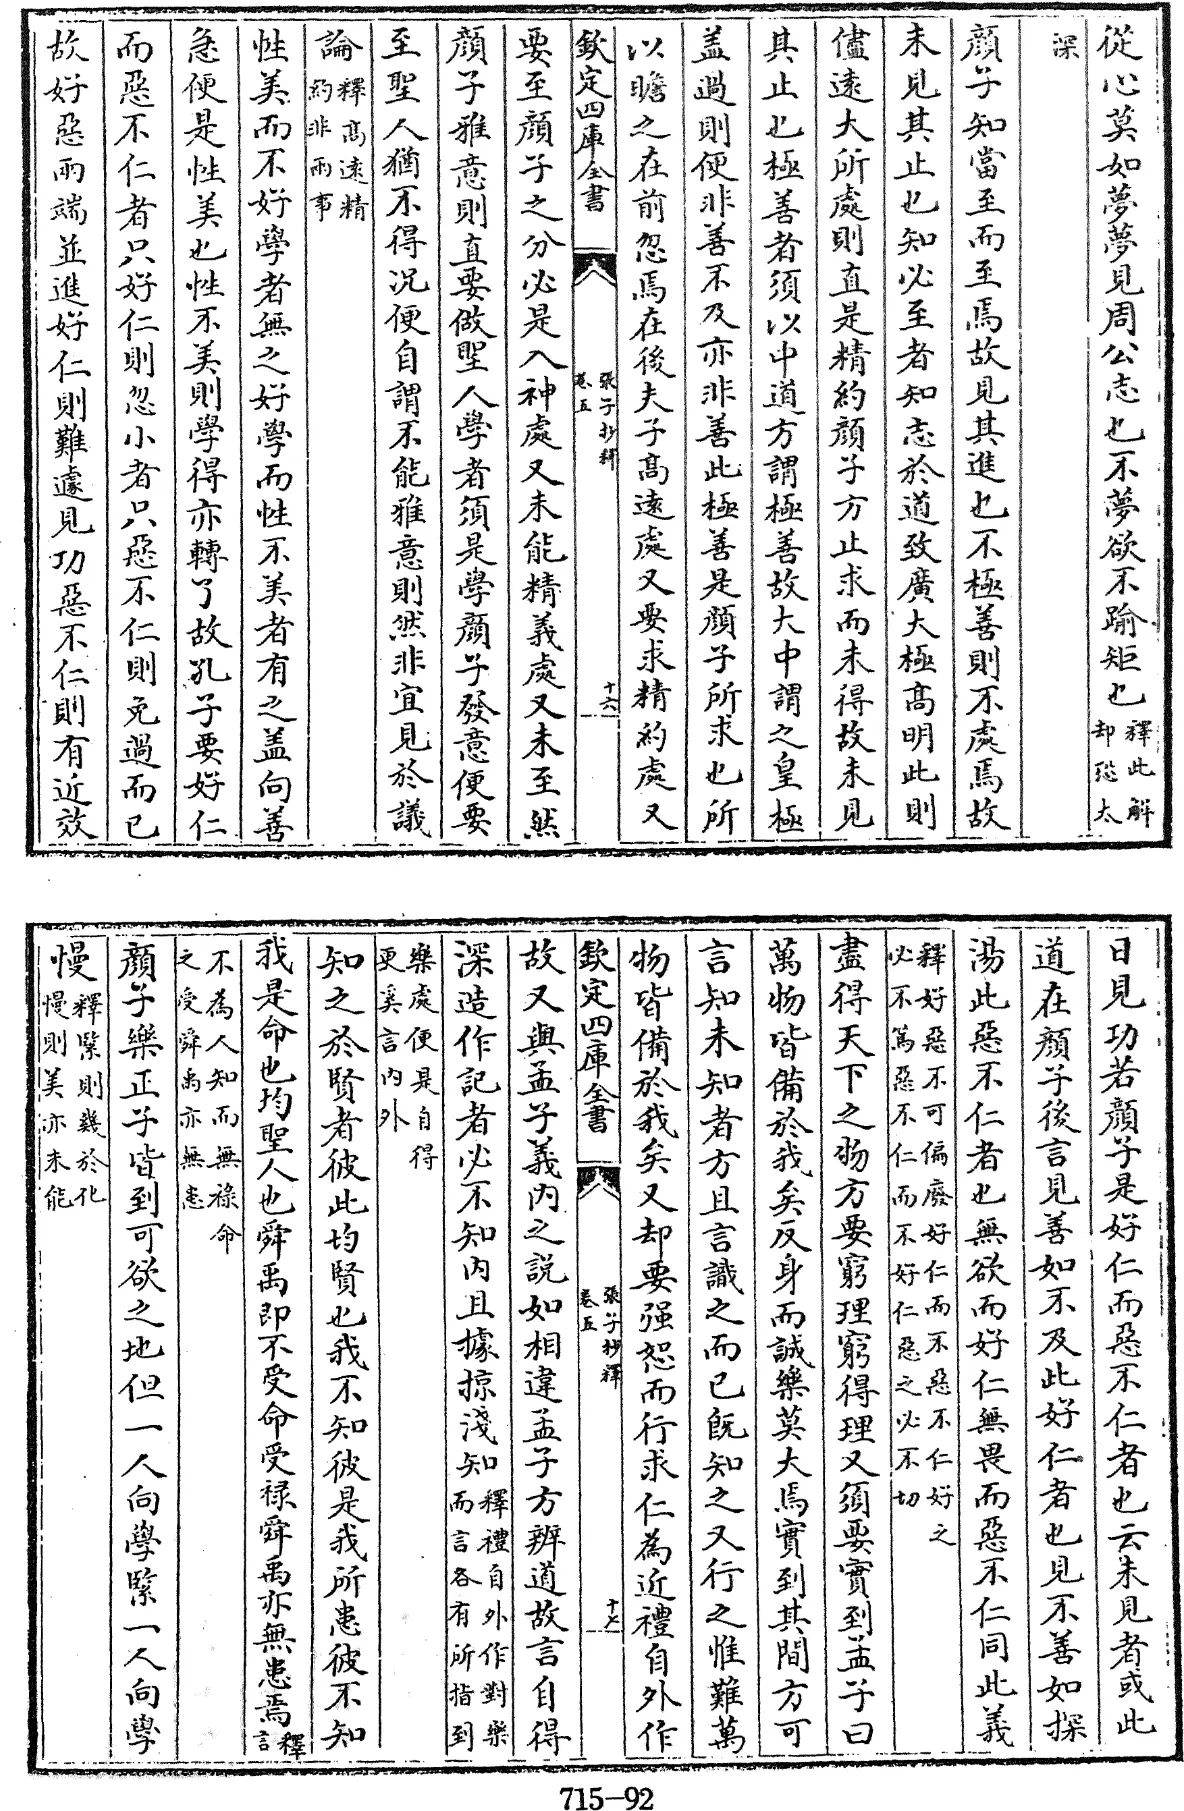 從心莫如夢夢見周公志也不夢欲不踰矩也釋此解却恐太
深
顔子知當至而至焉故見其進也不極善則不處焉故
未見其止也知必至者知志於道致廣大極高明此則
儘遠大所處則直是精約顔子方止求而未得故未見
其止也極善者須以中道方謂極善故大中謂之皇極
盖過則便非善不及亦非善此極善是顔子所求也所
以瞻之在前忽焉在後夫子高遠處又要求精約處又
欽定四庫全書
張子抄釋
卷五
十六
要至顔子之分必是入神處又未能精義處又未至然
顔子雅意則直要做聖人學者須是學顔子發意便要
至聖人猶不得况便自謂不能雅意則然非宜見於議
論釋高遠精約非兩事
性美而不好學者無之好學而性不美者有之盖向善
急便是性美也性不美則學得亦轉了故孔子要好仁
而惡不仁者只好仁則忽小者只惡不仁則免過而已
故好惡兩端並進好仁則難遽見功惡不仁則有近效
日見功若顔子是好仁而惡不仁者也云未見者或此
道在顔子後言見善如不及此好仁者也見不善如探
湯此惡不仁者也無欲而好仁無畏而惡不仁同此義
釋好惡不可偏廢好仁而不惡不仁好之
必不篤惡不仁而不好仁惡之必不切
盡得天下之物方要窮理窮得理又須要實到孟子曰
萬物皆備於我矣反身而誠樂莫大焉實到其間方可
言知未知者方且言識之而已既知之又行之惟難萬
物皆備於我矣又却要强恕而行求仁為近禮自外作
欽定四庫全書
張子抄釋
卷五
十七
故又與孟子義内之說如相違孟子方辨道故言自得
深造作記者必不知内且據掠淺知釋禮自外作對樂而言各有所指到
樂處便是自得
更奚言内外
知之於賢者彼此均賢也我不知彼是我所患彼不知
我是命也均聖人也舜禹即不受命受祿舜禹亦無患焉釋言
不為人知而無祿命
之受舜禹亦無患
顔子樂正子皆到可欲之地但一人向學緊一人向學
慢釋緊則幾於化慢則美亦未能
715-92